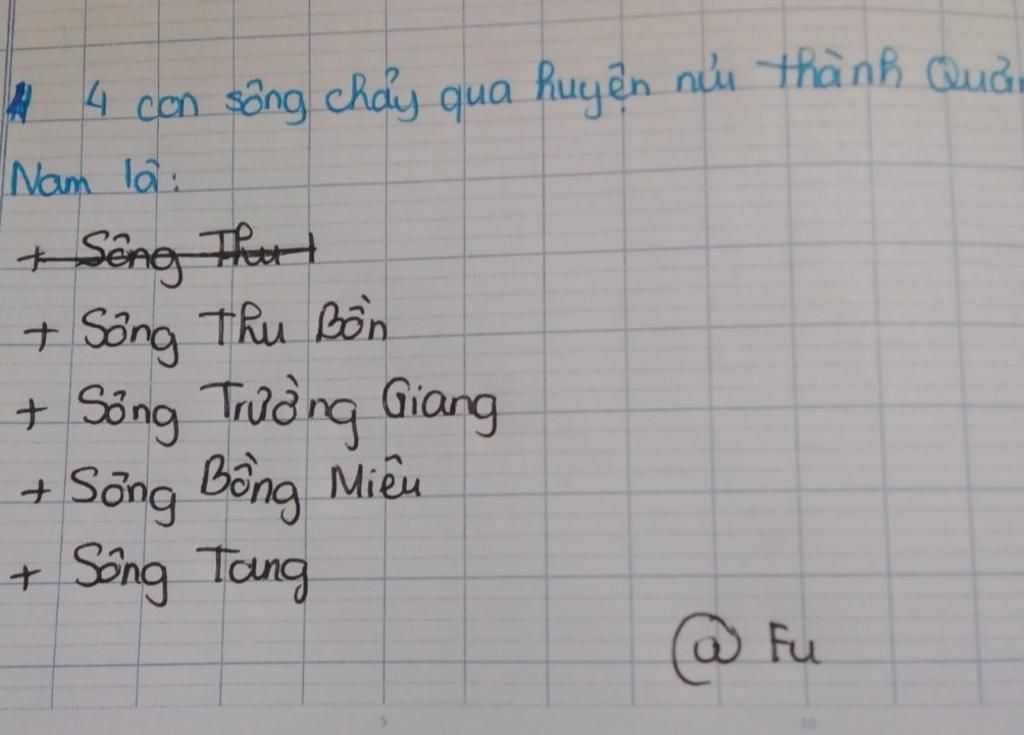 4 con sông chảy qua huyện núi thành Quả
Nam là:
+ Sông Thu
+ Sông Thu Bồn
+ Sông Trường Giang
+ Sông Bồng Miêu
+ Sông Tang
@ Fu
5
10